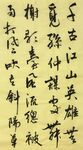 千古江山英雄無
覓孫仲謀處舞
榭歌臺風流總被
雨打風吹去斜陽草